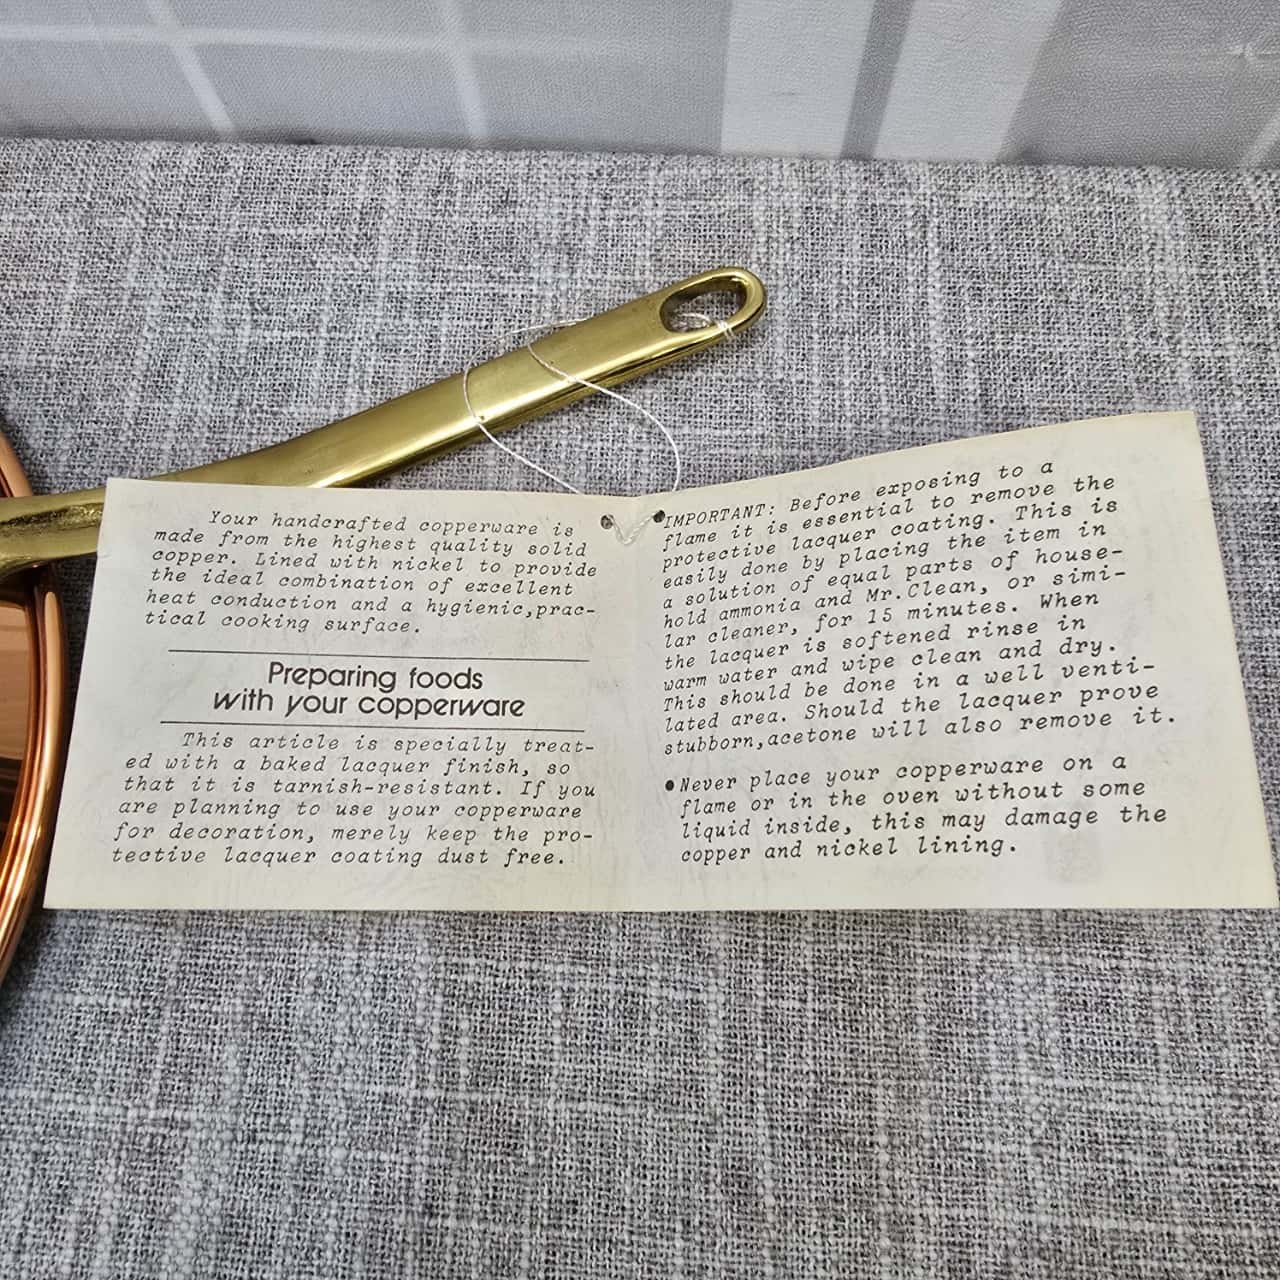 Your handcrafted copperware is
made from the highest quality solid
copper. Lined with nickel to provide
the ideal combination of excellent
heat conduction and a hygienic,prac-
tical cooking surface.
Preparing foods
with your copperware
This article is specially treat-
ed with a baked lacquer finish, so
that it is tarnish-resistant. If you
are planning to use your copperware
for decoration, merely keep the pro-
tective lacquer coating dust free.
IMPORTANT: Before exposing to a
flame it is essential to remove the
protective lacquer coating. This is
easily done by placing the item in
a solution of equal parts of house-
hold ammonia and Mr.Clean, or simi-
lar cleaner, for 15 minutes. When
the lacquer is softened rinse in
warm water and wipe clean and dry.
This should be done in a well venti-
lated area. Should the lacquer prove
stubborn,acetone will also remove it.
•Never place your copperware on a
flame or in the oven without some
liquid inside, this may damage the
copper and nickel lining.